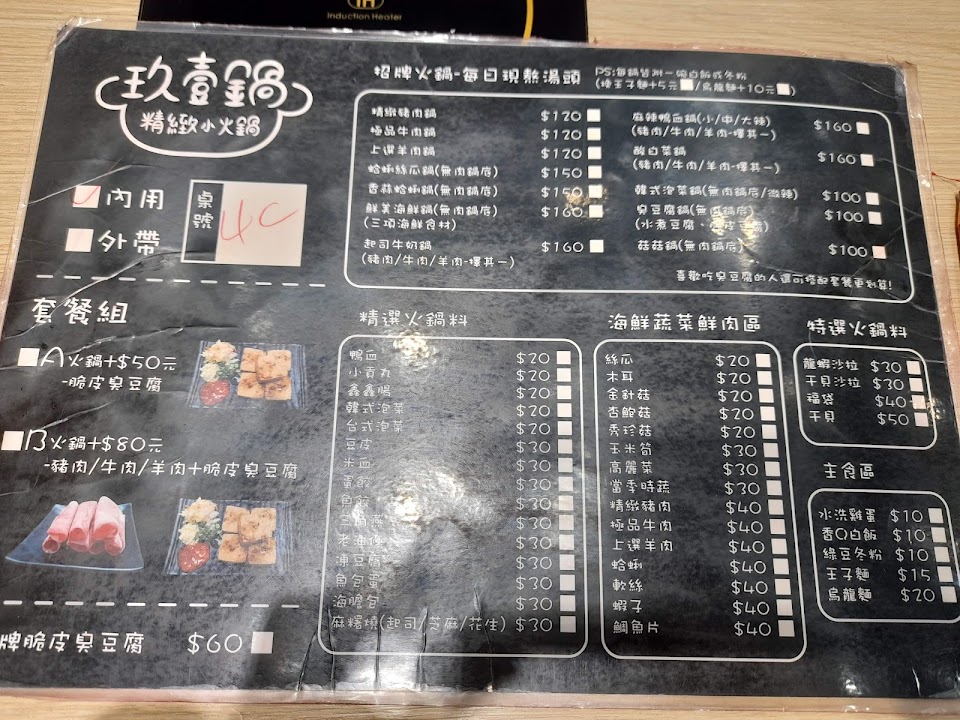 Induction Heater
玖壹鍋
精緻小火鍋
內用
外帶
桌號
4C
招牌火鍋-每日現熬湯頭
PS:每鍋皆附一碗白飯或冬粉
(換王子麵+5元/烏龍麵+10元)
精緻豬肉鍋 $120
極品牛肉鍋 $120
上選羊肉鍋 $120
蛤蜊絲瓜鍋(無肉鍋底) $150
香蒜蛤蜊鍋(無肉鍋底) $150
鮮美海鮮鍋(無肉鍋底) $160
(三項海鮮食材)
起司牛奶鍋 $160
(豬肉/牛肉/羊肉-擇其一)
麻辣鴨血鍋(小/中/大辣) $160
(豬肉/牛肉/羊肉-擇其一)
酸白菜鍋 $160
(豬肉/牛肉/羊肉-擇其一)
韓式泡菜鍋(無肉鍋底/微辣) $100
臭豆腐鍋(無肉鍋底) $100
(水煮豆腐、皮豆腐)
菇菇鍋(無肉鍋底) $100
喜歡吃臭豆腐的人還可搭配套餐更划算!
套餐組
A火鍋+$50元
-脆皮臭豆腐
B火鍋+$80元
-豬肉/牛肉/羊肉+脆皮臭豆腐
牌脆皮臭豆腐 $60
精選火鍋料
鴨血 $20
小貢丸 $20
鑫鑫腸 $20
韓式泡菜 $20
台式泡菜 $20
豆皮 $30
米血 $30
蛋餃 $30
魚餃 $30
三 燕 $30
老油條 $30
凍豆腐 $30
魚包蛋 $30
海膽包 $30
麻糬燒(起司/芝麻/花生) $30
海鮮蔬菜鮮肉區
絲瓜 $20
木耳 $20
金針菇 $20
杏鮑菇 $20
秀珍菇 $20
玉米筍 $30
高麗菜 $30
當季時蔬 $30
精緻豬肉 $40
極品牛肉 $40
上選羊肉 $40
蛤蜊 $40
軟絲 $40
蝦子 $40
鯛魚片 $40
特選火鍋料
龍蝦沙拉 $30
干貝沙拉 $30
福袋 $40
干貝 $50
主食區
水洗雞蛋 $10
香Q白飯 $10
綠豆冬粉 $10
王子麵 $15
烏龍麵 $20